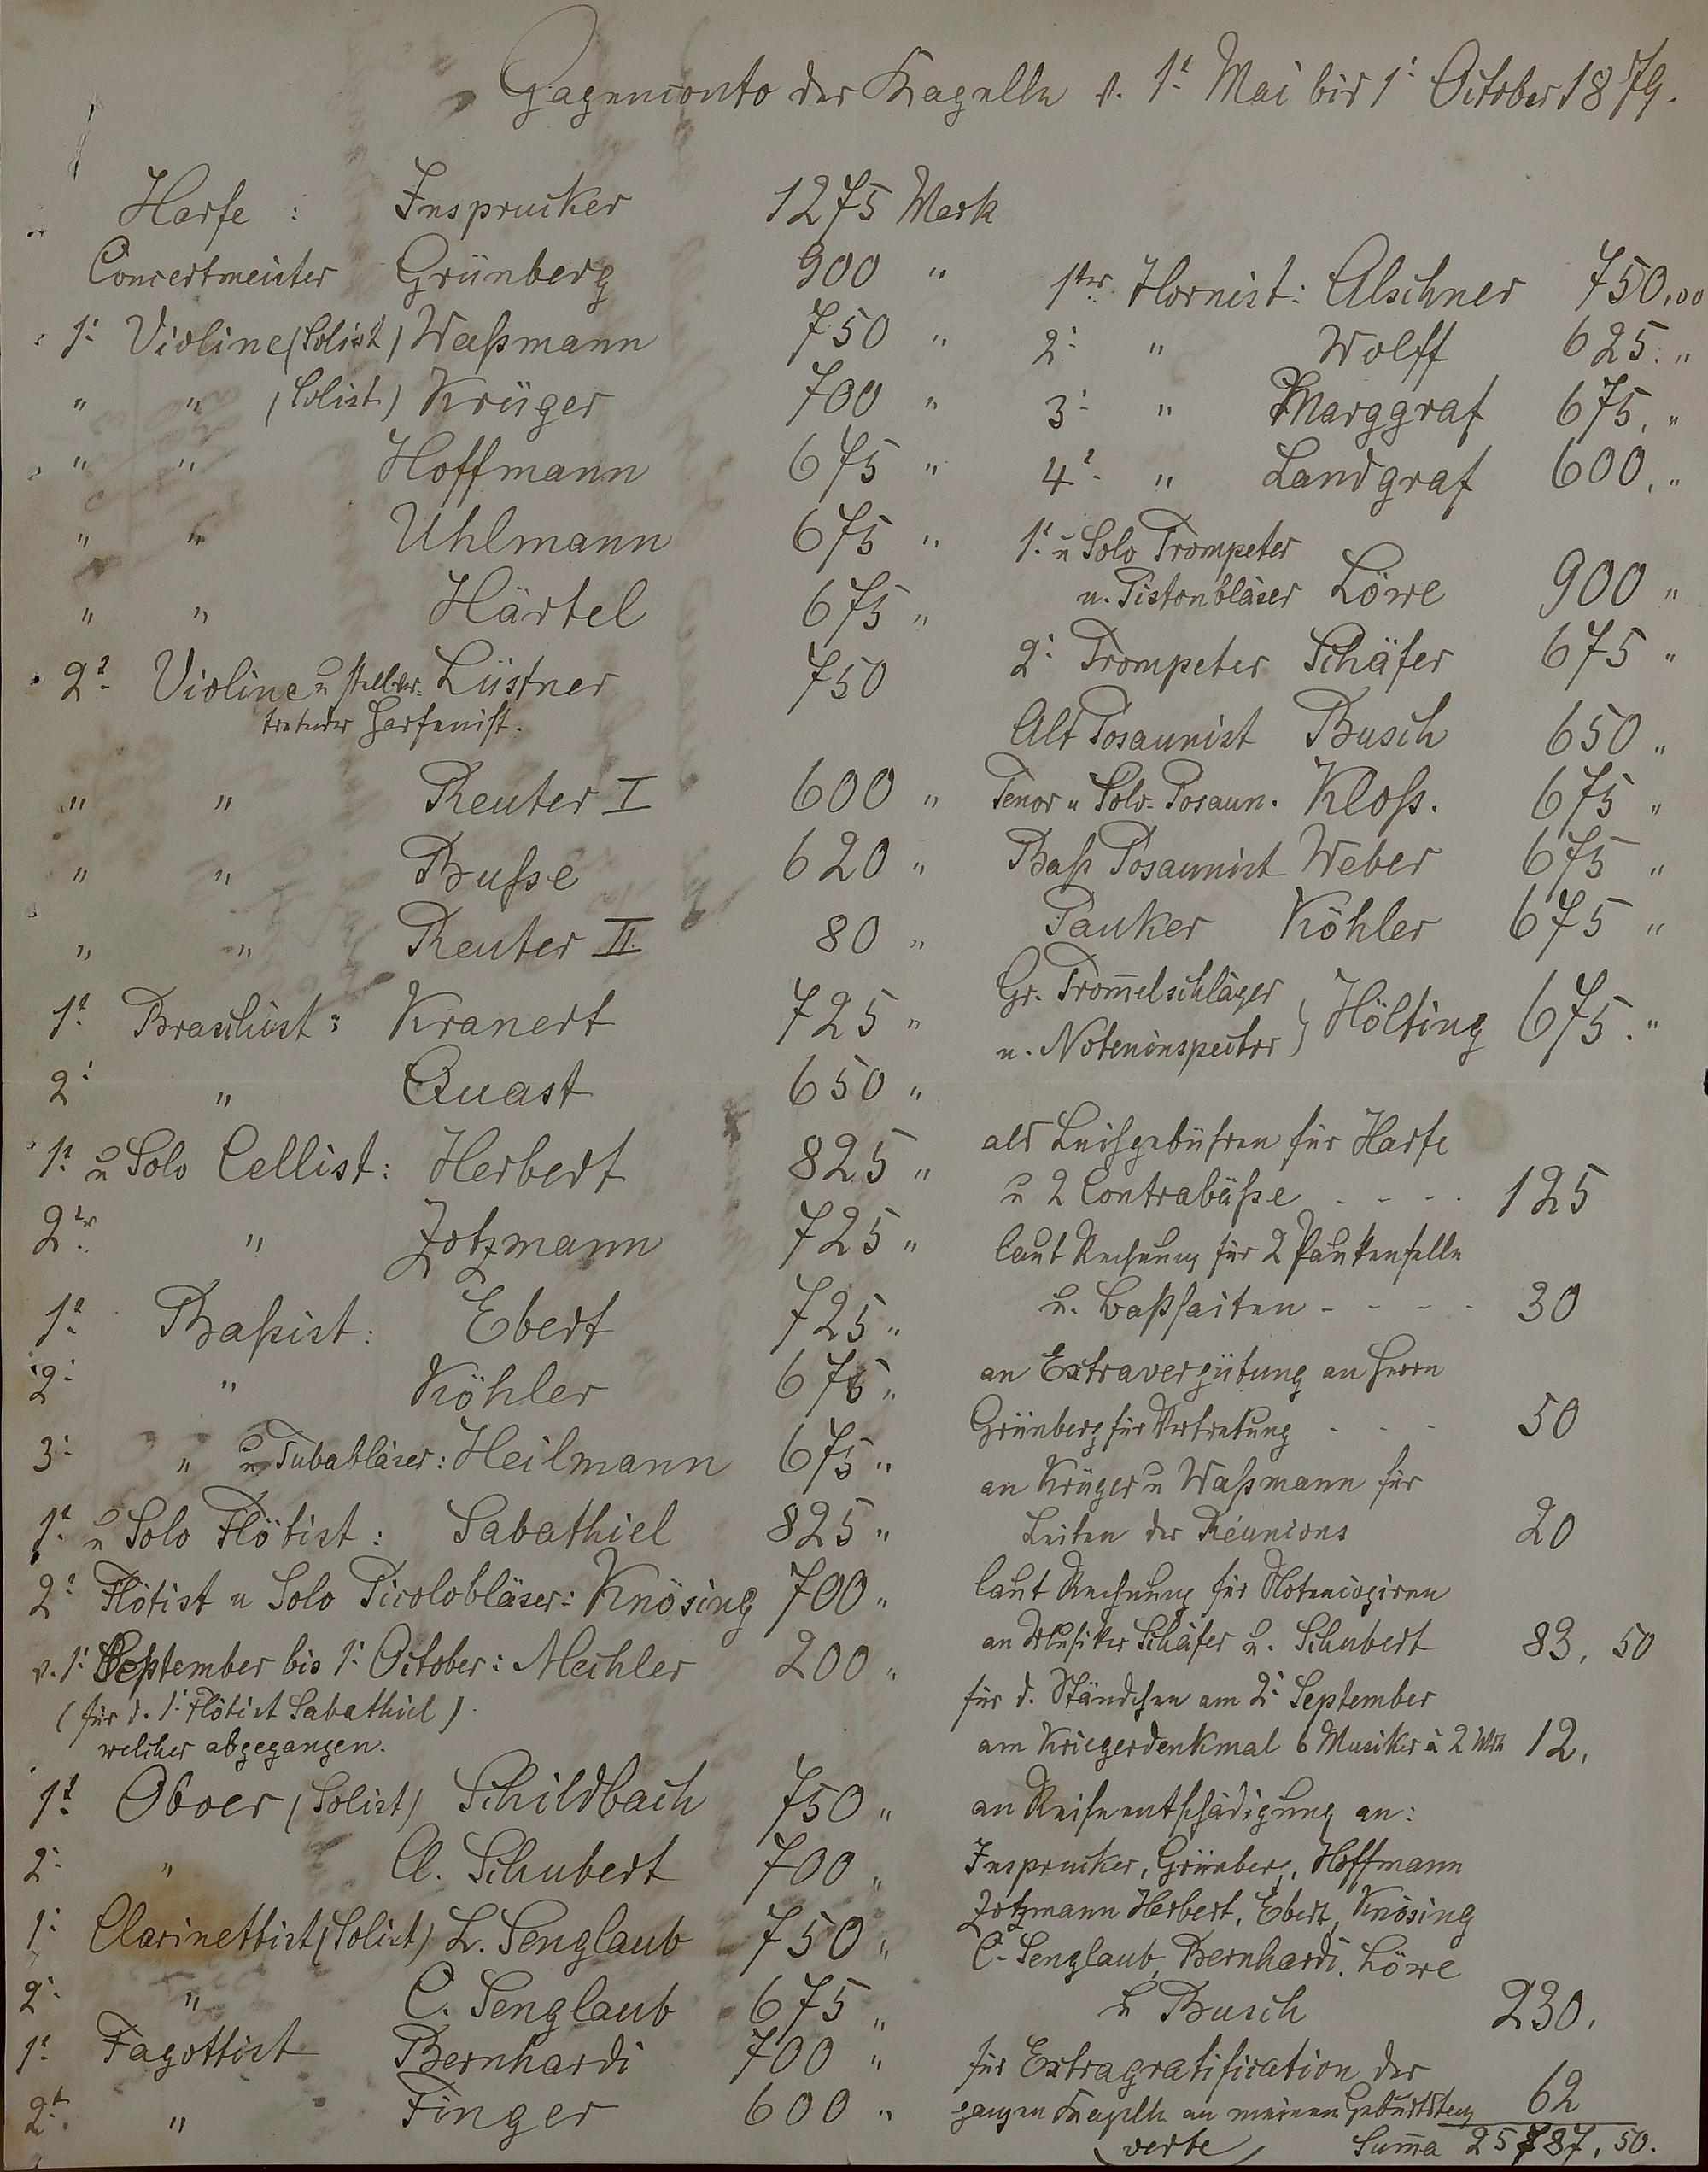 Gagenconto der Kapelle v. 1t. Mai bis 1t. October 1879.
Harfe : Insprucker 1275 Mark
Concertmeister Grünberg 900 "
1t. Violine (Solist) Waßmann 750 "
" " (Solist) Krüger 700 "
" " Hoffmann 675 "
" " Uhlmann 675 "
" " Härtel 675 "
2t. Violine u stellver- Lüstner 750
tretender Harfenist.
" " Reuter I 600 "
" " Bußse 620 "
" " Reuter II 80 "
1t. Braschist: Kranert 725 "
2t. " Quast 650 "
1t. u Solo Cellist: Herbert 825 "
2ter " Zotzmann 725 "
1t. Baßist: Ebert 725 "
2t. " Köhler 675 "
3t. " u Tubabläser: Heilmann 675 "
1t. u Solo Flötist: Sabathiel 825 "
2t. Flötist u Solo Picolobläser: Knösing 700 "
v. 1t. September bis 1t. October: Mechler 200 "
(für d. 1t. Flötist Sabathiel)
welcher abgegangen.
1t. Oboer (Solist) Schildbach 750 "
2t. " A. Schubert 700 "
1t. Clarinettist (Solist) L. Senglaub 750 "
2t. " C. Senglaub 675 "
1t. Fagottist Bernhardi 700 "
2t. " Finger 600 "
1ter. Hornist: Alschner 750,00
2t. " Wolff 625. "
3t. " Marggraf 675, "
4t. " Landgraf 600, "
1t. u Solo Trompeter
u. Pistonbläser Löwe 900 "
2t. Trompeter Schäfer 675 "
Alt Posaunist Busch 650 "
Tenor u Solo-Posaun. Kloß. 675 "
Baß Posaunist Weber 675 "
Pauker Köhler 675 "
Gr. Trom̅elschläger
u. Noteninspector } Hölting 675. "
als Leihgebühren für Harfe
u 2 Contrabäße - - - - 125
laut Rechnung für 2 Paukenfelle
u. Baßsaiten - - - - 30
an Extravergütung an Herrn
Grünberg für Vertretung - - - 50
an Krüger u Waßmann für
Leiten der Réunions 20
laut Rechnung für Notencopiren
an Musiker Schäfer u. Schubert 83, 50
für d. Ständchen am 2t. September
am Kriegerdenkmal 6 Musiker à 2 Mk 12,
an Reiseentschädigung an:
Insprucker, Grünberg, Hoffmann
Zotzmann Herbert, Ebert, Knösing
C. Senglaub, Bernhardi, Löwe
u Busch 230,
für Extragratification der
ganzen Kapelle an meinem Geburtstag 62
(verte) Sum̅a 25787, 50.